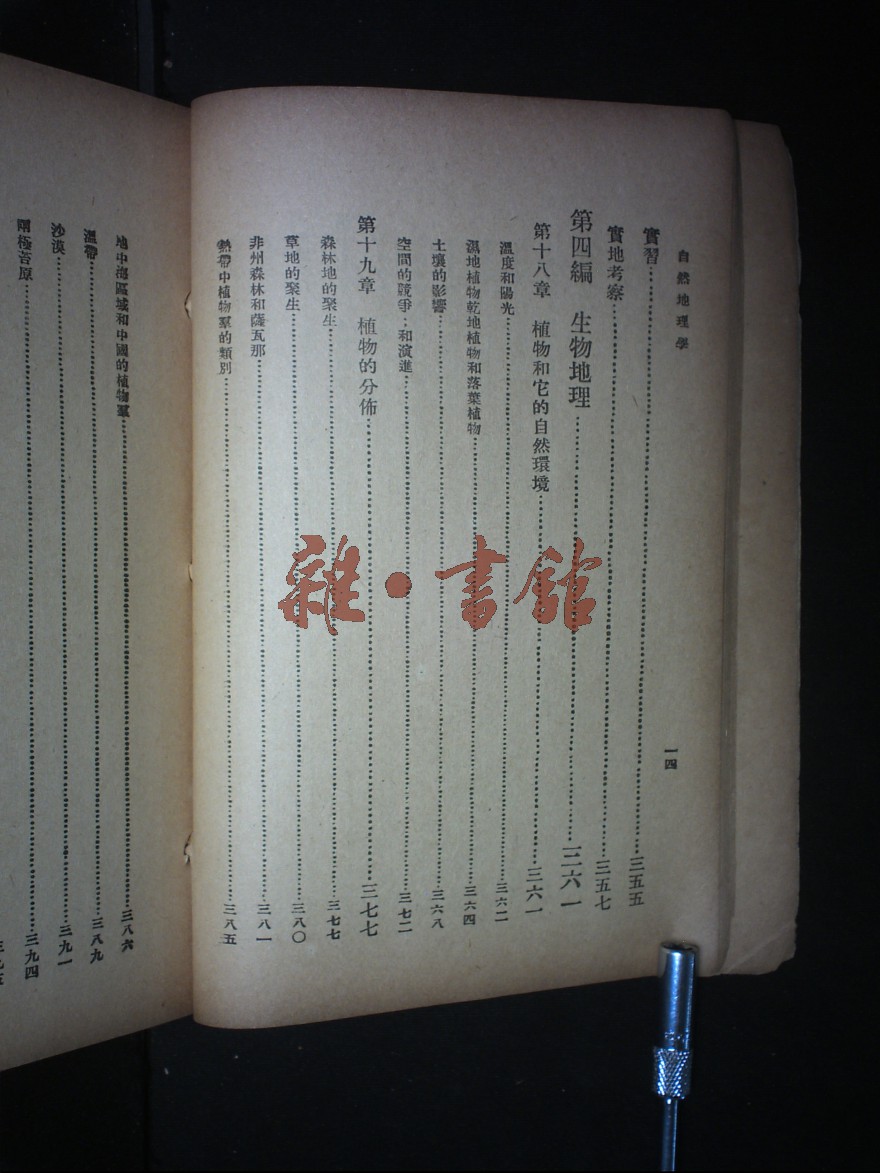 自然地理學
一四
實習 三五五
實地考察 三五七
第四編 生物地理 三六一
第十八章 植物和它的自然環境 三六一
溫度和陽光 三六二
濕地植物乾地植物和落葉植物 三六四
土壤的影響 三六八
空間的競爭：和演進 三七二
第十九章 植物的分佈 三七七
森林地的聚生 三七七
草地的聚生 三八〇
非州森林和薩瓦那 三八一
熱帶中植物羣的類別 三八五
地中海區域和中國的植物羣 三八六
溫帶 三八九
沙漠 三九一
兩極苔原 三九四
雜·書館